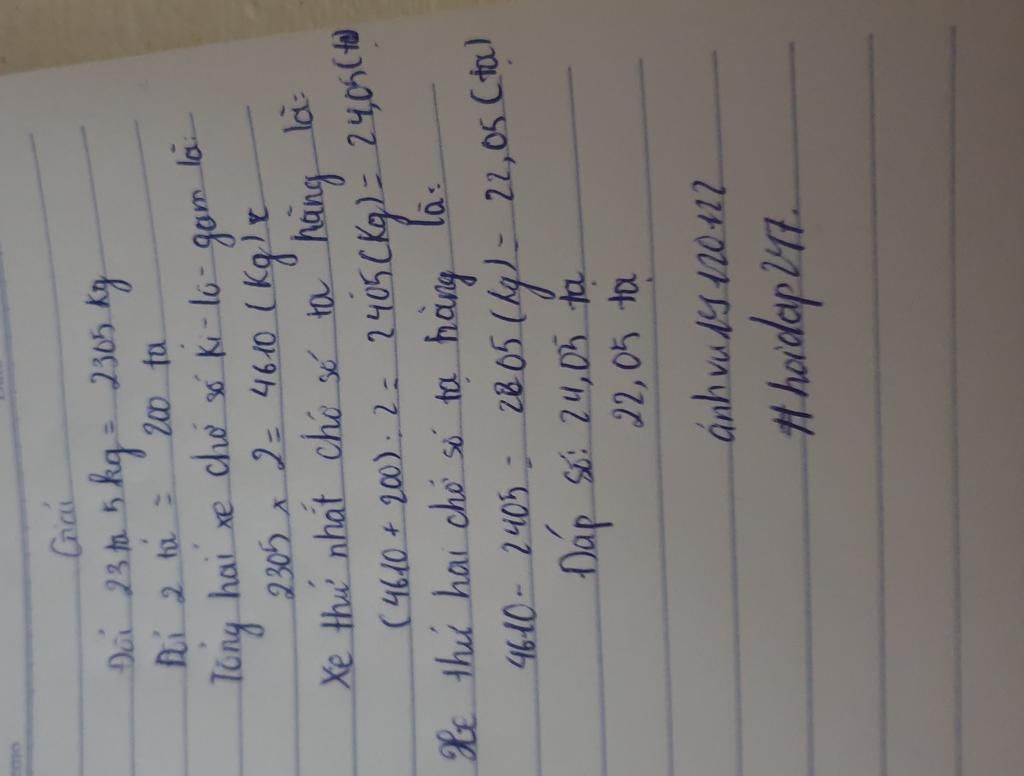 Giải
Đổi 23 tạ 5 kg = 2305 kg
Đổi 2 tạ = 200 tạ
Tổng hai xe chở số ki-lô-gam là:
2305 x 2 = 4610 (kg)
Xe thứ nhất chở số tạ hàng là:
(4610 + 200) : 2 = 2405 (kg) = 24,05 (tạ)
Xe thứ hai chở số tạ hàng là:
4610 - 2405 = 2205 (kg) = 22,05 (tạ)
Đáp số: 24,05 tạ
22,05 tạ
#hoidap247.